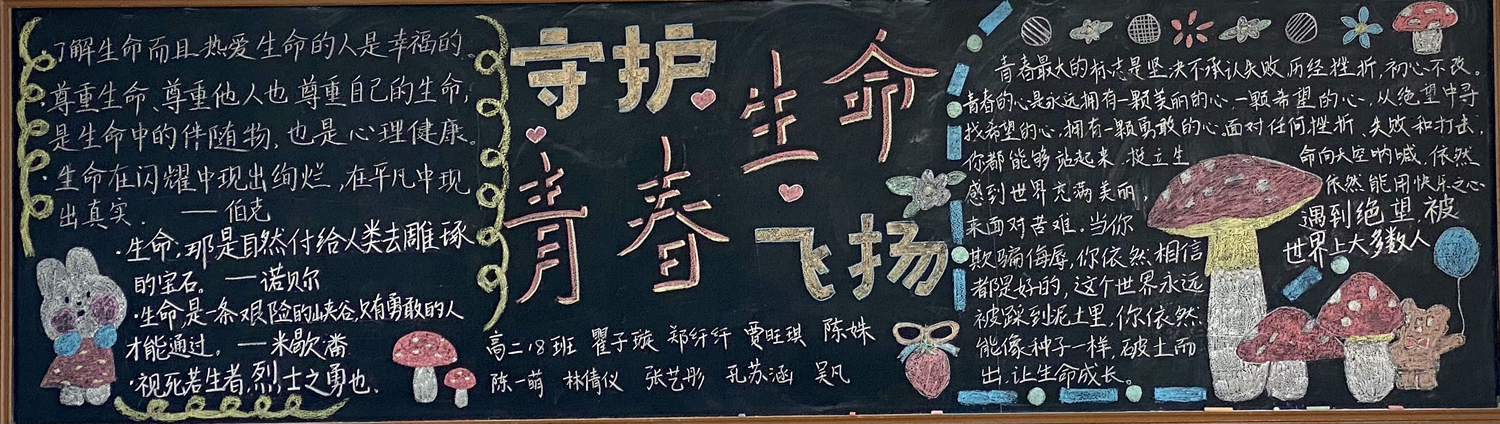 了解生命而且热爱生命的人是幸福的
·尊重生命、尊重他人也尊重自己的生命,
是生命中的伴随物,也是心理健康。
·生命在闪耀中现出绚烂,在平凡中现
出真实. ——伯克
·生命,那是自然付给人类去雕琢
的宝石。——诺贝尔
·生命是一条艰险的峡谷,只有勇敢的人
才能通过。——米歇潘
·视死若生者,烈士之勇也、
守护生命
青春飞扬
高二18班 瞿子璇 郑纤纤 贾旺琪 陈姝
陈一萌 林倩仪 张艺彤 孔苏涵 吴凡
青春最大的标志是坚决不承认失败,历经挫折,初心不改。
青春的心是永远拥有一颗美丽的心,一颗希望的心,从绝望中寻
找希望的心,拥有一颗勇敢的心,面对任何挫折、失败和打击,
你都能够站起来,挺立生命向天空呐喊,依然
感到世界充满美丽,依然能用快乐之心
来面对苦难.当你遇到绝望,被
世界上大多数人
欺骗侮辱,你依然相信
都是好的,这个世界永远
被踩到泥土里,你依然
能像种子一样,破土而
出,让生命成长。